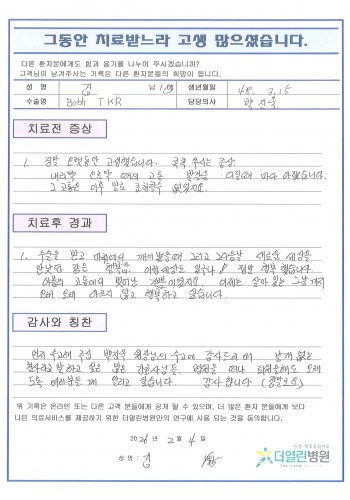 그동안 치료받느라 고생 많으셨습니다.
다른 환자분에게도 힘과 용기를 나누어 주시겠습니까?
고객님이 남겨주시는 기록은 다른 환자분들의 희망이 됩니다.
성 명 김 님 생년월일 48. 2. 15
수술명 Both TKR 담당의사 박진욱
치료전 증상
1. 정말 오랫동안 고생했습니다. 쿡쿡 쑤시는 증상.
내리막 오르막 에서의 고통 발걸음 디딜때 마다 아팠습니다.
그 고통은 이루 말로 표현할수 없었지요.
치료후 경과
1. 수술을 받고 마취에서 깨어났을때 그리고 그다음날 새로운 세상을
만났던 같은 행복감. 이런세상도 있구나 정말 행복 했습니다.
아픔의 고통에서 벗어난 기쁨이었지요. 이제는 살아 있는 그날 까지
오래 오래 아프지 않고 행복하고 싶습니다.
감사와 칭찬
먼저 수고해 주신 박진욱 원장님의 수고에 감사드리며
천사라고 말 하고 싶은 많은 간호사님들 병원을 떠나 퇴원을해도 오래
도록 여러분들 께 알리고 싶습니다. 감사 합니다
위 기록은 온라인 또는 다른 고객 분들에게 공개 될 수 있으며, 더 많은 환자 분들에게 보다
나은 의료서비스를 제공하기 위한 더열린병원만의 연구에 사용 되는 것을 동의합니다.
2026 년 2 월 4 일
성 명 : 김
더열린병원